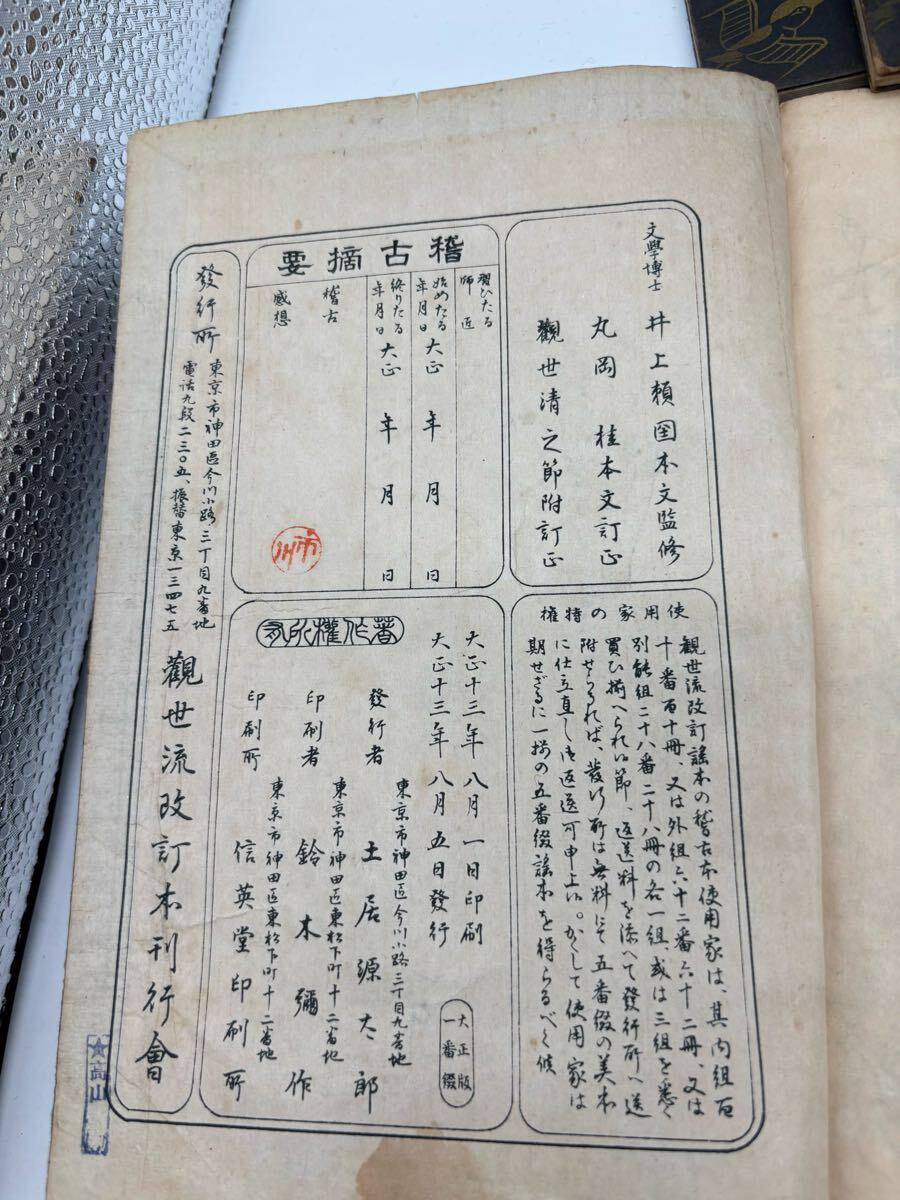 文學博士 井上頼圀本文監修
丸岡 桂本文訂正
觀世清之節附訂正
使用家の特權
觀世流改訂謠本の稽古本使用家は、其内組百
十番百十冊、又は外組六十二番六十二冊、又は
別能組二十八番二十八冊の各一組、或は三組を悉く
買ひ揃へられし節、返送料を添へて發行所へ送
附せらるれば、發行所は無料にて五番綴の美本
に仕立直し御返送可申上候。かくして使用家は
期せざるに一揃の五番綴謠本を得らるべく候
稽古摘要
習ひたる師匠
始めたる年月日 大正 年 月 日
終りたる年月日 大正 年 月 日
稽古感想
市川
著作權所有
大正十三年八月一日印刷
大正十三年八月五日發行
大正版
一番綴
發行者 東京市神田區今川小路三丁目九番地
土居源太郎
印刷者 東京市神田區東松下町十二番地
鈴木彌作
印刷所 東京市神田區東松下町十二番地
信英堂印刷所
發行所 東京市神田區今川小路三丁目九番地
電話九段二三〇五、振替東京一三四七五
觀世流改訂本刊行會
高山